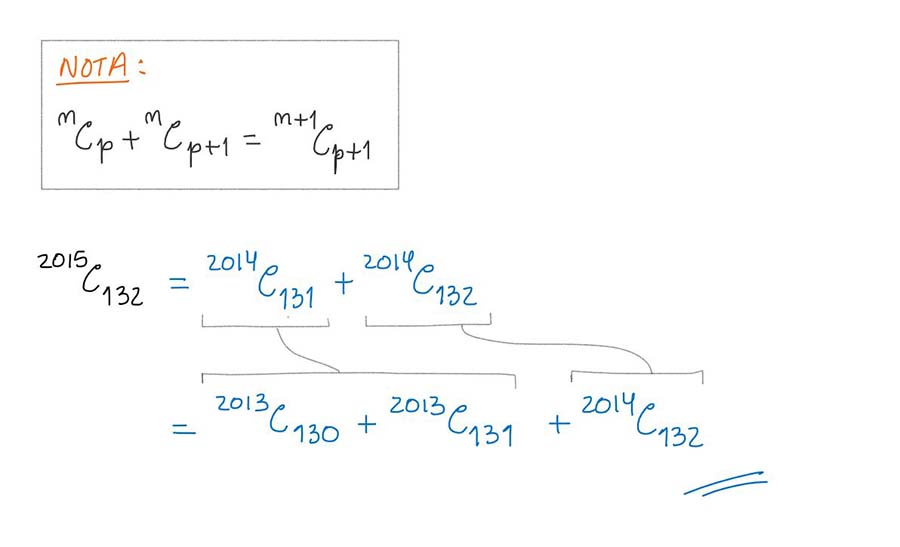 NOTA:
ᵐCₚ + ᵐCₚ₊₁ = ᵐ⁺¹Cₚ₊₁
²⁰¹⁵C₁₃₂ = ²⁰¹⁴C₁₃₁ + ²⁰¹⁴C₁₃₂
= ²⁰¹³C₁₃₀ + ²⁰¹³C₁₃₁ + ²⁰¹⁴C₁₃₂